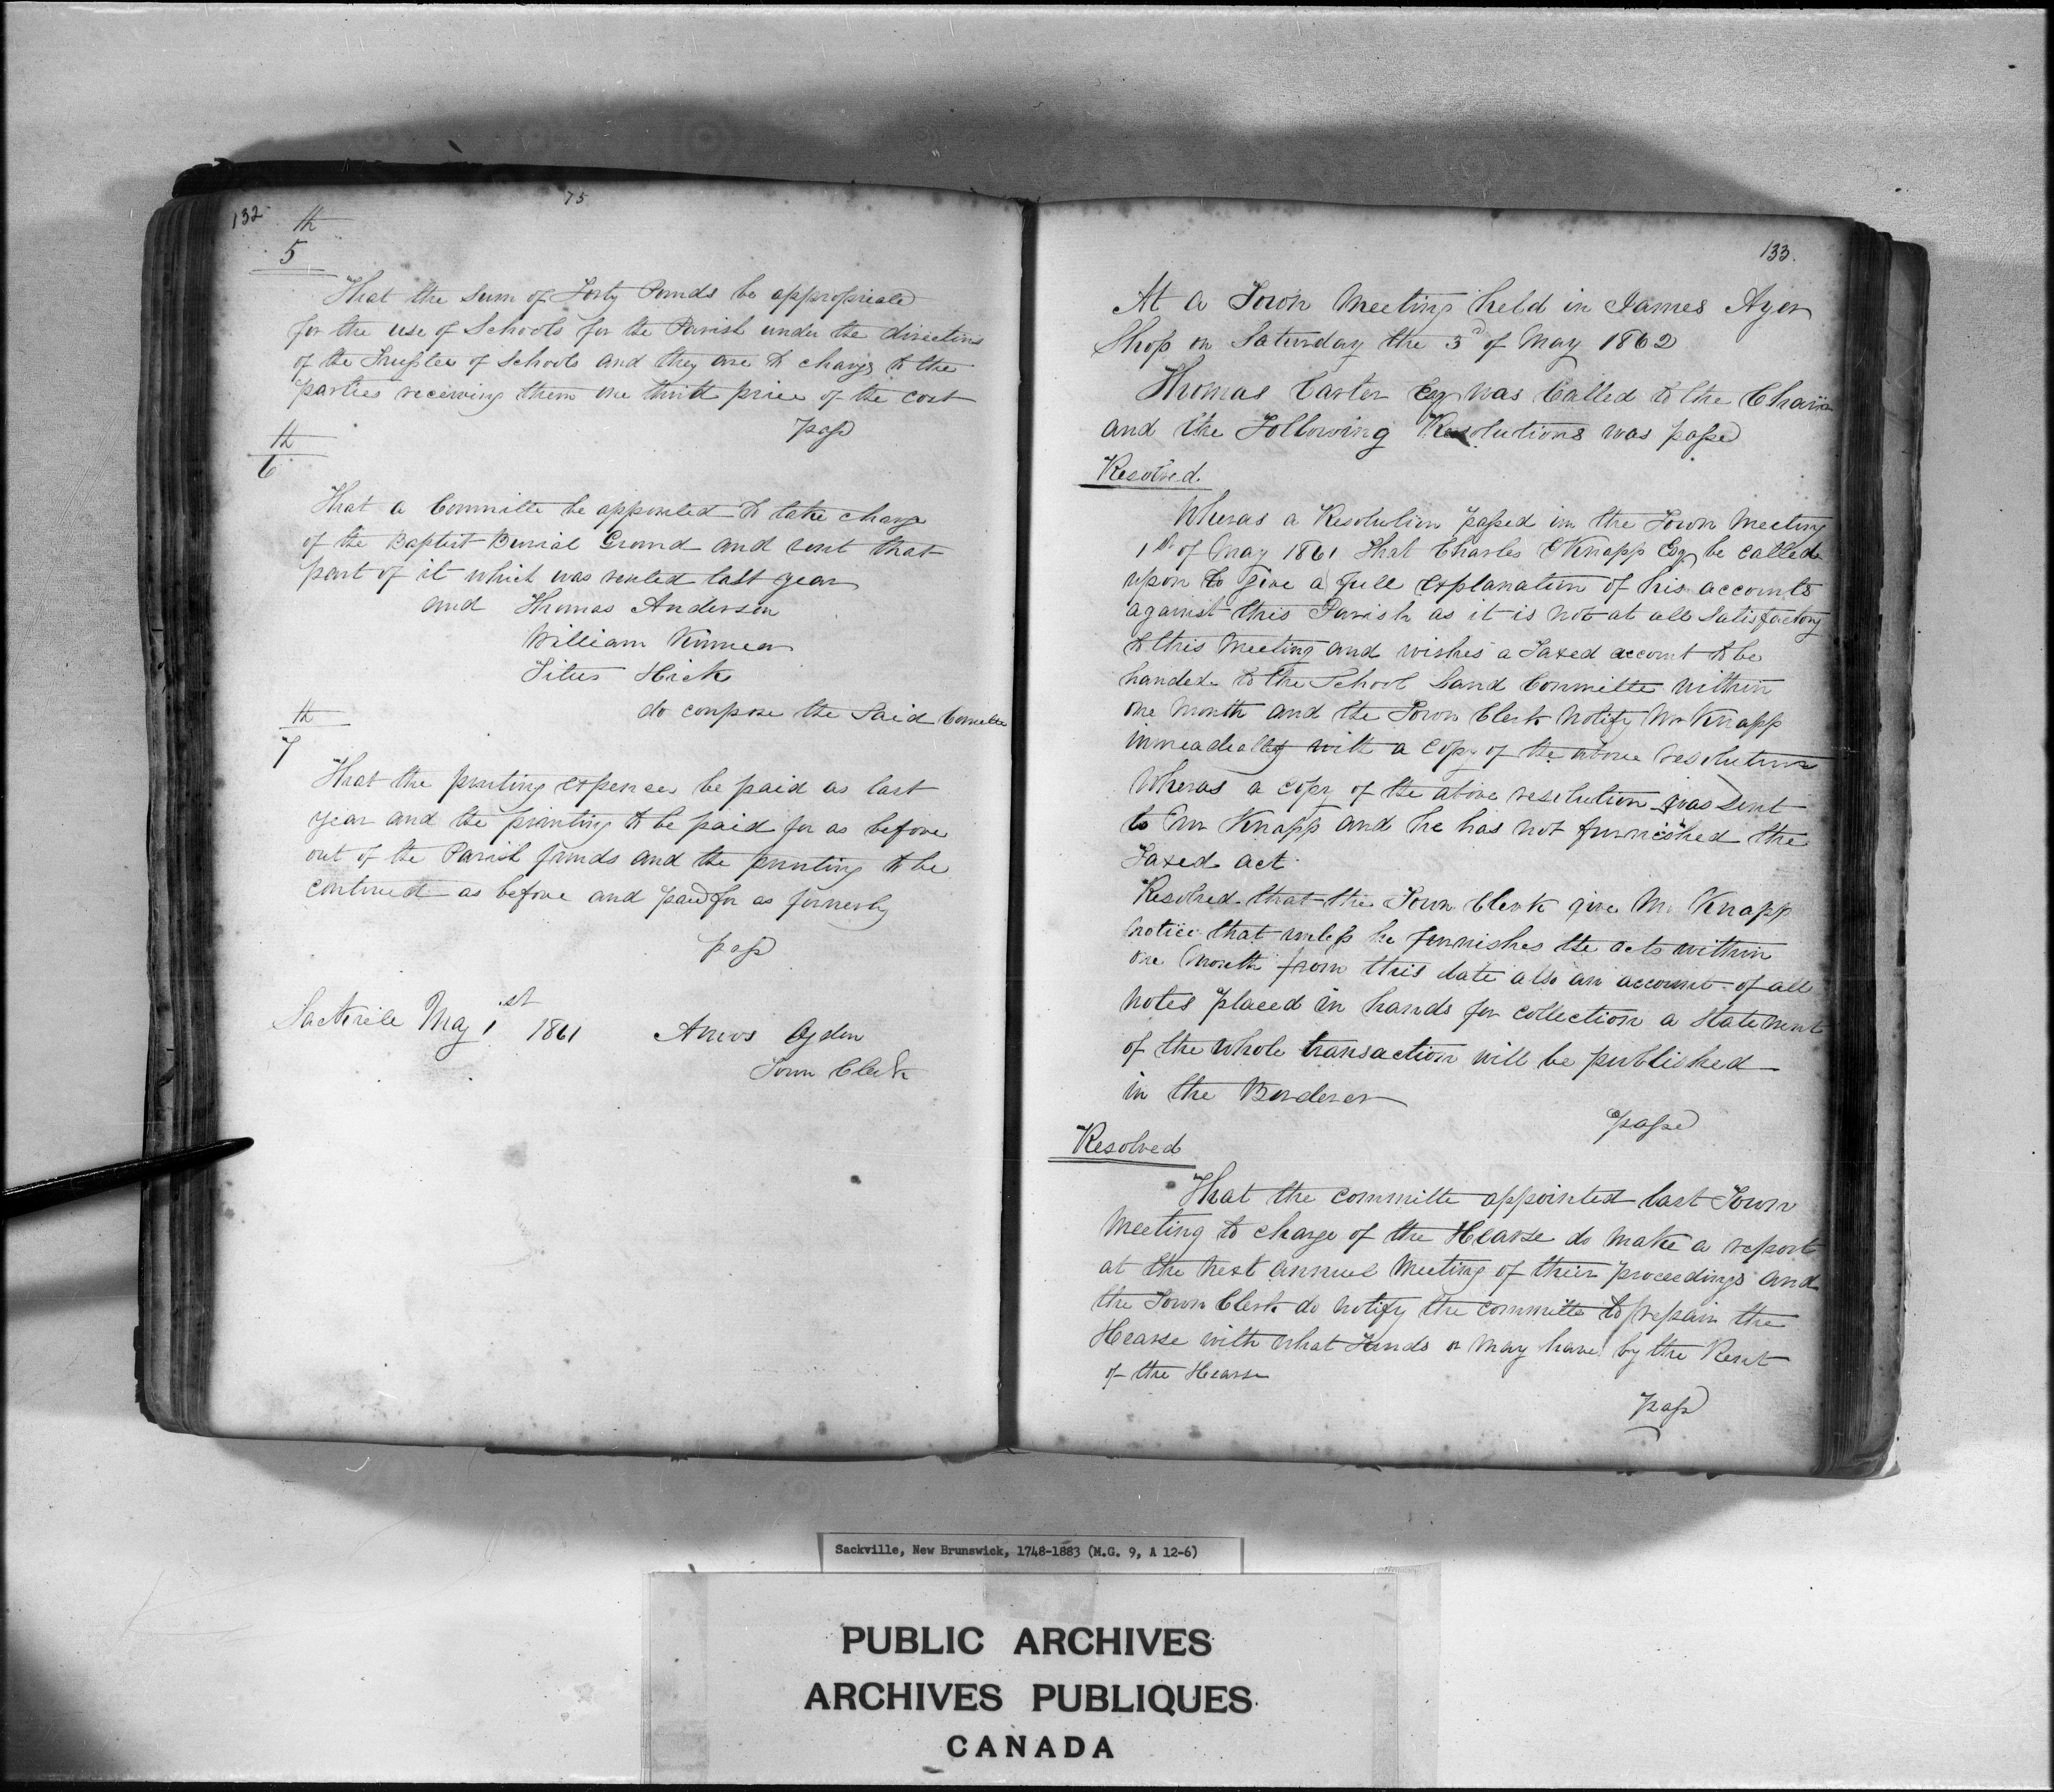 132
75
5th
That the Sum of Forty Pounds be appropriated
for the use of Schools for the Parish under the directions
of the Trustee of Schools and they are to charge to the
parties receiving them one third price of the cost
pass
6th
That a Committe be appointed to take charge
of the Baptist Burial Ground and rent that
part of it which was rented last year
and Thomas Anderson
William Kinnear
Titus Hicks
do compose the Said Committee
7th
That the printing expences be paid as last
year and the printing to be paid for as before
out of the Parish funds and the printing to be
continued as before and paid for as formerly
pass
Sackville May 1st 1861 Amos Ogden
Town Clerk
133.
At a Town Meeting held in James Ayer
Shop on Saturday the 3d of May 1862
Thomas Carter Esq was Called to the Chair
and the Following Resolutions was passed
Resolved
Wheras a Resolution passed in the Town Meeting
1st of May 1861 That Charles E Knapp Esq be called
upon to give a full explanation of his accounts
against this Parish as it is not at all Satisfactory
to this Meeting and wishes a Taxed account to be
handed to the School Land Committe within
one Month and the Town Clerk Notify Mr Knapp
immeadiatly with a Copy of the above resolution
Wheras a copy of the above resolution was Sent
to Mr Knapp and he has not furnished the
Taxed act
Resolved that the Town Clerk give Mr Knapp
notice that unless he furnishes the acts within
one Month from this date also an account of all
Notes placed in hands for collection a Statement
of the whole transaction will be published
in the Borderer
passed
Resolved
That the committe appointed last Town
Meeting to charge of the Hearse do make a report
at the next annuel Meeting of their proceedings and
the Town Clerk do notify the committe to repair the
Hearse with what Funds or may have by the Rent
of the Hearse
pass
Sackville, New Brunswick, 1748-1883 (M.G. 9, A 12-6)
PUBLIC ARCHIVES
ARCHIVES PUBLIQUES
CANADA